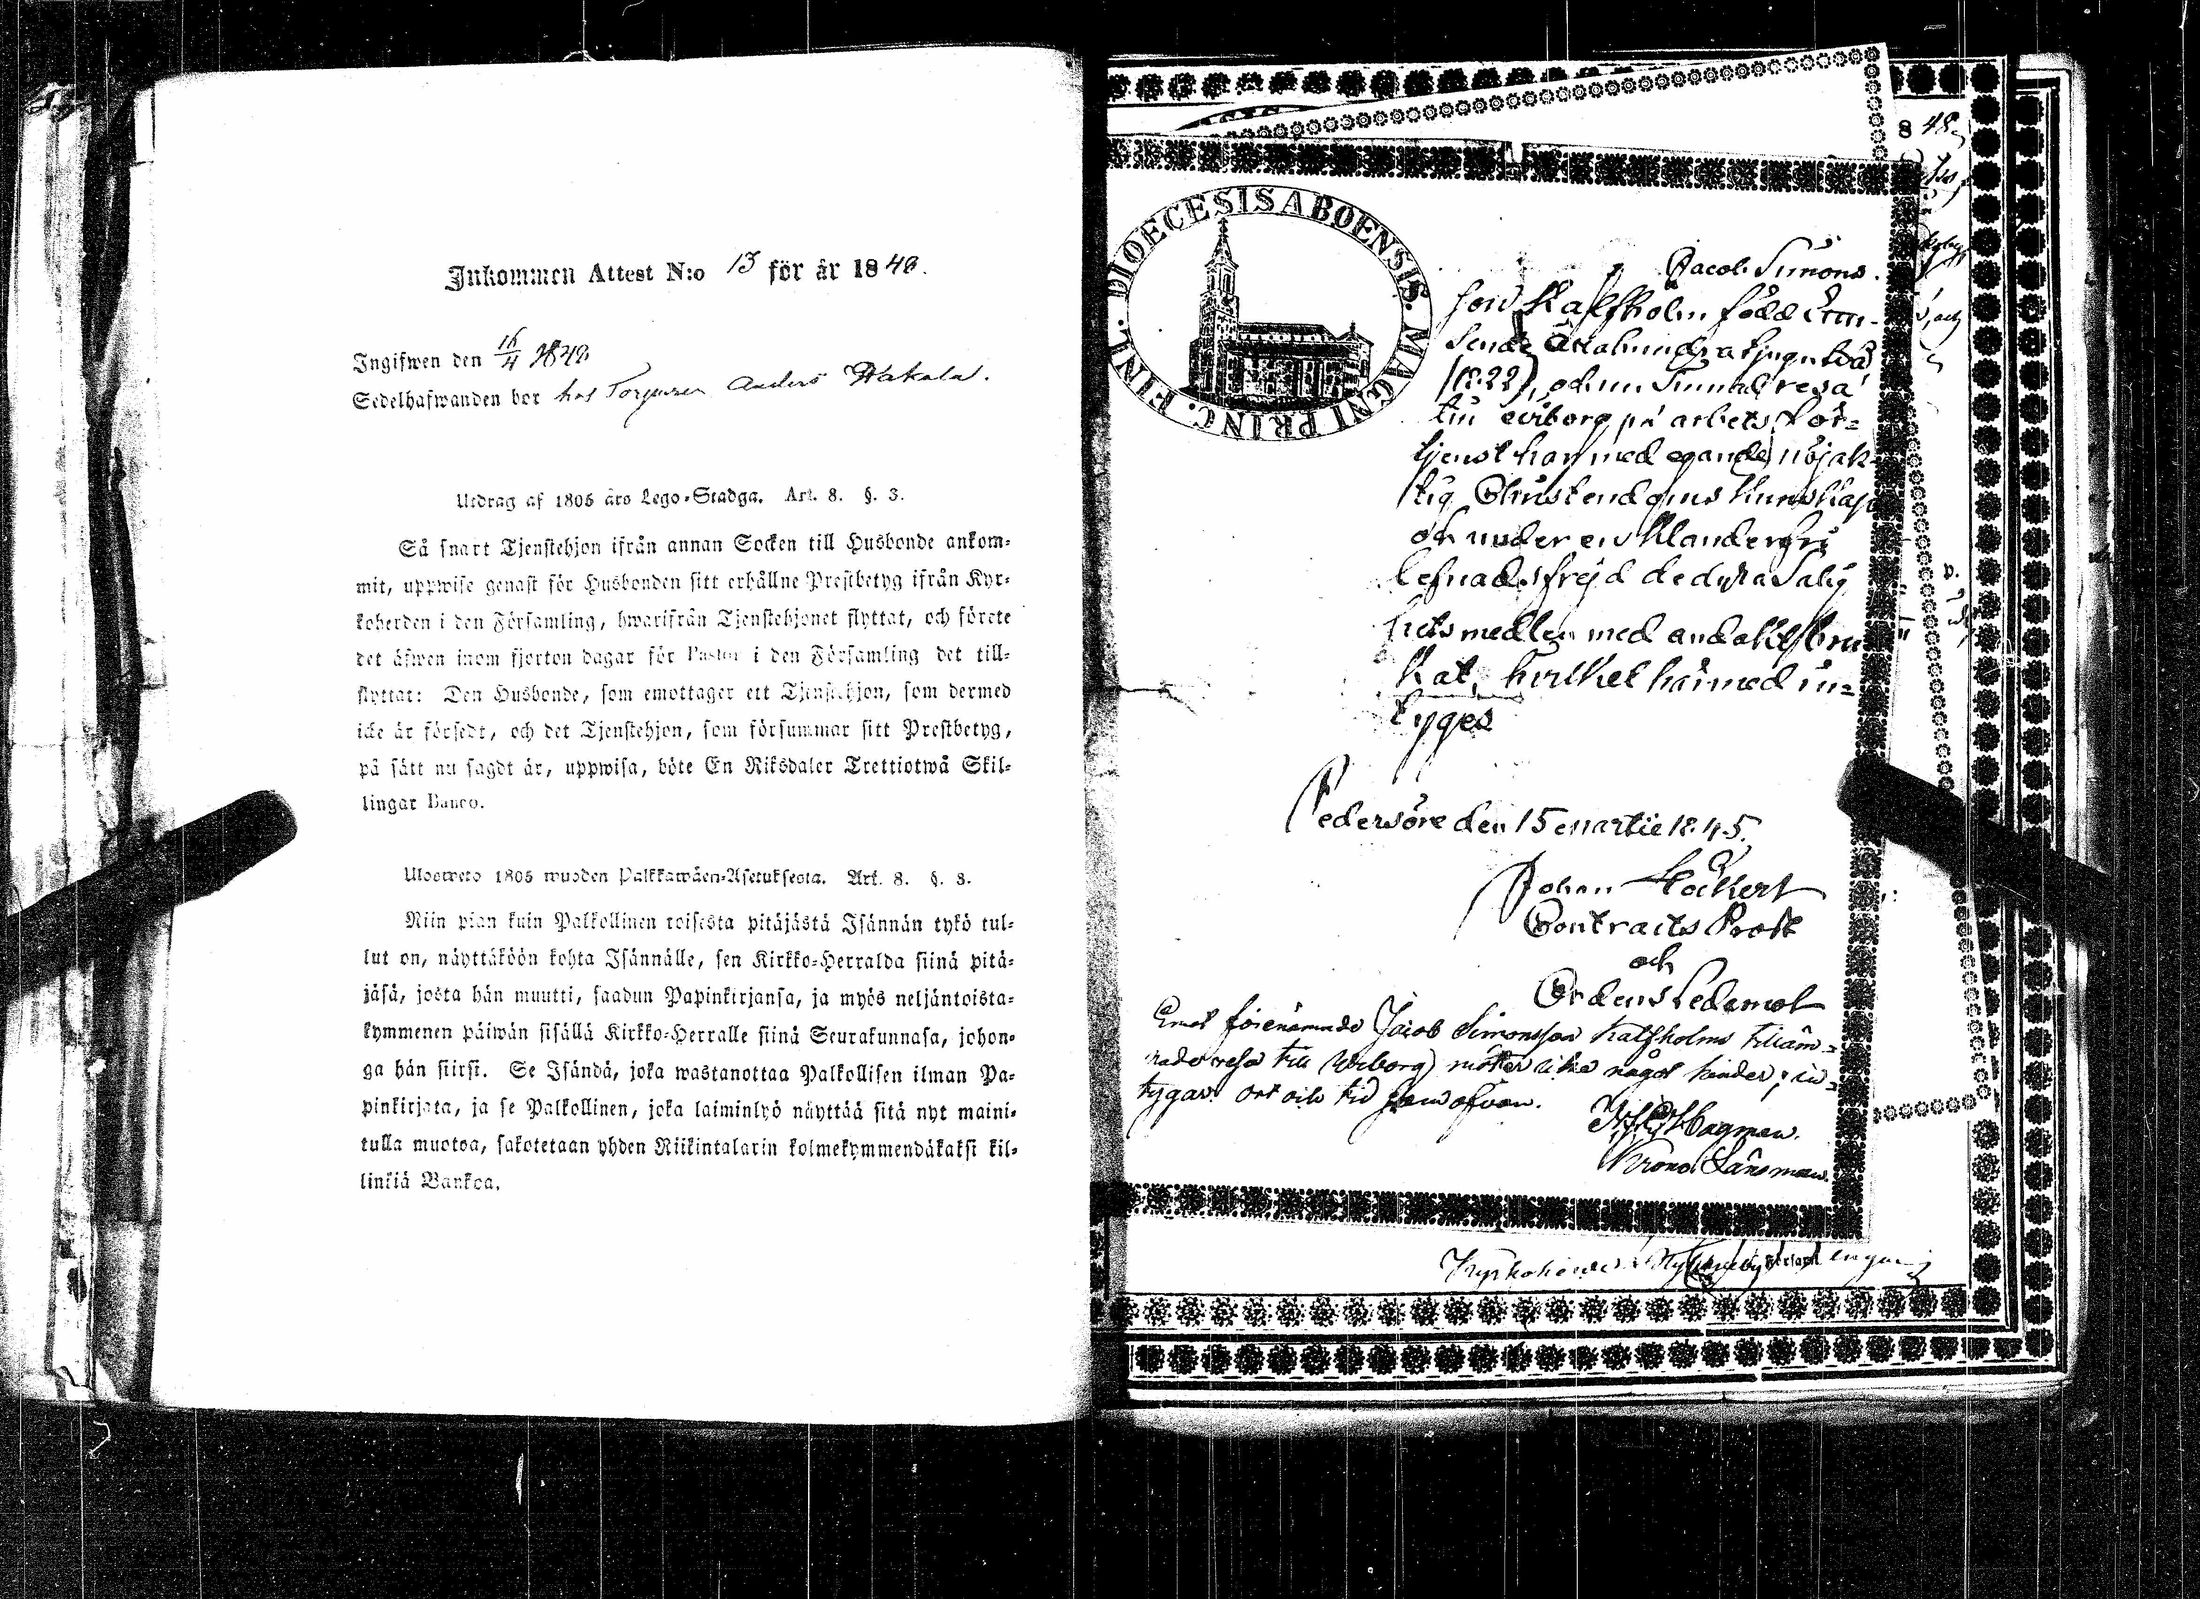 Inkommen Attest N:o 13 för år 1848.
Ingifwen den 16/4 1848
Sedelhafwanden bor hos Torparen Anders Hakala.
Utdrag af 1805 års Lego-Stadga. Art. 8. §. 3.
Så snart Tjenstehjon ifrån annan Socken till Husbonde ankom-
mit, uppwise genast för Husbonden sitt erhållne Prestbetyg ifrån Kyr-
koherden i den Församling, hwarifrån Tjenstehjonet flyttat, och förete
det äfwen inom fjorton dagar för Pastor i den Församling det till-
flyttat: Den Husbonde, som emottager ett Tjenstehjon, som dermed
icke är försedt, och det Tjenstehjon, som försummar sitt Prestbetyg,
på sätt nu sagdt är, uppwisa, böte En Riksdaler Trettiotwå Skil-
lingar Banco.
Ulosweto 1805 wuoden Palkkawäen-Asetuksesta. Art. 8. §. 3.
Niin pian kuin Palkollinen toisesta pitäjästä Isännän tykö tul-
lut on, näyttäköön kohta Isännälle, sen Kirkko-Herralda siinä pitä-
jäsä, josta hän muutti, saadun Papinkirjansa, ja myös neljäntoista-
kymmenen päiwän sisällä Kirkko-Herralle siinä Seurakunnasa, johon-
ga hän siirsi. Se Isändä, joka wastanottaa Palkollisen ilman Pa-
pinkirjata, ja se Palkollinen, joka laiminlyö näyttää sitä nyt maini-
tulla muotoa, sakotetaan yhden Riikintalarin kolmekymmendäkaksi kil-
linkiä Bankoa.
8 48
DIOECESIS ABOENSIS. MAGNI PRINC. FINL.
Jacob Simons
son Kalfholm född Ettu-
sende Åttahundra tjugutvå
(1822), och nu sinnad resa
till Wiborg på arbets för-
tjenst har med egande nöjak-
tig Christendoms kunskap
och under en klanderfri
lefnads frejd de dyra Salig
hets medlen med andakt bru
kat, hvilket härmed in-
tyges
Pedersöre den 15 Martii 1845.
Johan Höckert
Contracts Prost
och
Ordens Ledamot
Emot förenämnde Jacob Simonsson Kalfholms tilläm-
nade resa till Wiborg möter icke något hinder; in-
tygar. Ort och tid som ofvan.
Hagman.
Krono Länsman.